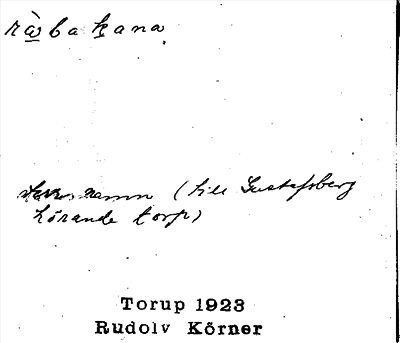 ràbakana
namn (till Gustafsberg
hörande torp)
Torup 1923
Rudolv Körner